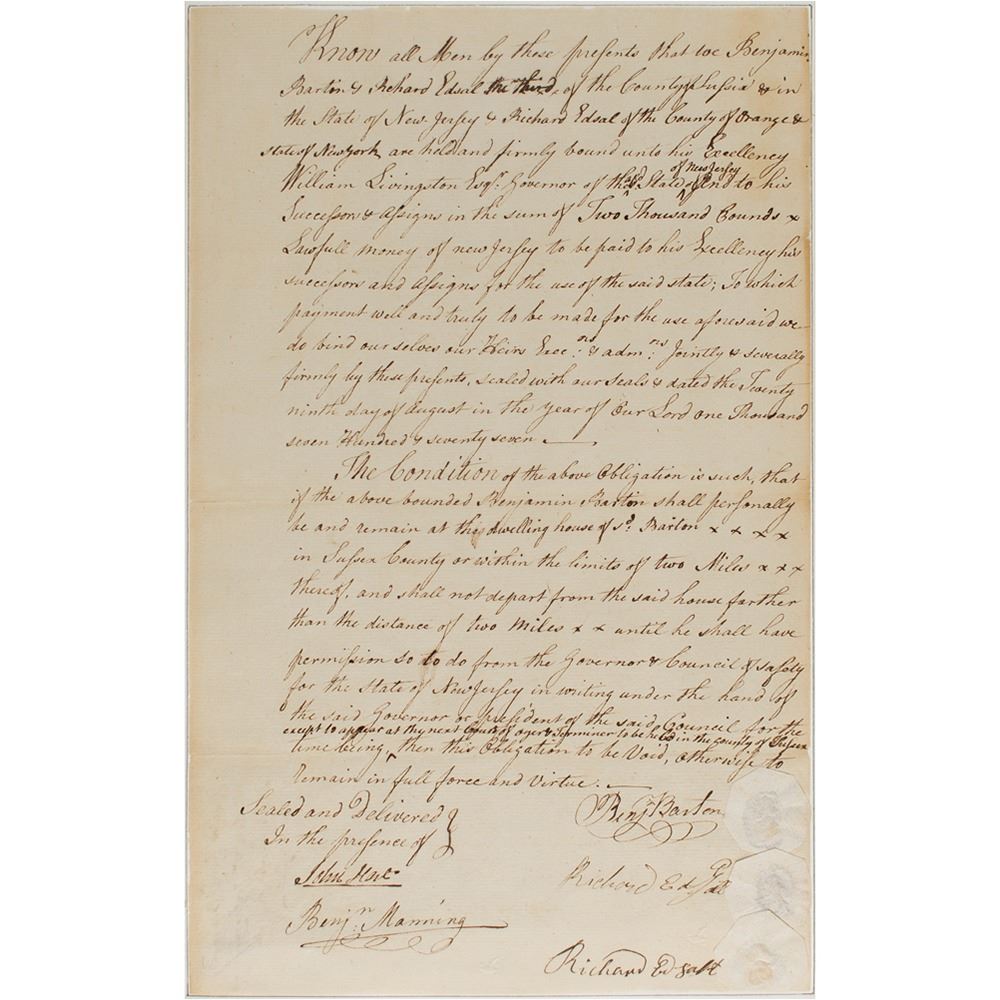 Know all Men by these presents that we Benjamin
Barton & Richard Edsal the third of the County of Sussix & in
the State of New Jersey & Richard Edsal of the County of Orange &
state of New York are held and firmly bound unto his Excellency
of New Jersey
William Livingston Esqr. Governor of the sd. State and to his
Successors & assigns in the sum of Two Thousand Pounds x
Lawfull money of new Jersey to be paid to his Excellency his
successors and assigns for the use of the said state; To which
payment well and truly to be made for the use aforesaid we
do bind our selves our Heirs Exec:ors & adm:ns Jointly & severally
firmly by these presents, sealed with our seals & dated the Twenty
ninth day of August in the year of Our Lord one Thousand
seven Hundred & seventy seven
The Condition of the above Obligation is such, that
if the above bounded Benjamin Barton shall personally
be and remain at the dwelling house of sd. Barton x x x x
in Sussex County or within the limits of two Miles x x x
thereof, and shall not depart from the said house farther
than the distance of two Miles x x until he shall have
permission so to do from the Governor & Council of safety
for the State of New Jersey in writing under the hand of
the said Governor or president of the said Council for the
except to appear at thy next Court of oyer & Terminer to be held in the county of Sussex
time being, then this Obligation to be Void, otherwise to
remain in full force and Virtue.
Sealed and Delivered
In the presence of
Benjn Barton
John
Richard Edsal
Benjn. Manning
Richard Edsall